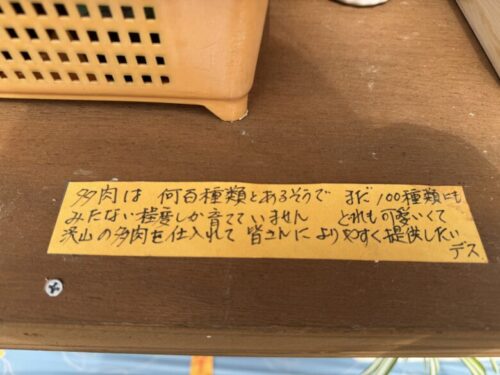 多肉は 何百種類とあるそうで まだ 100種類にも
みたない程度しか育てていません どれも可愛いくて
沢山の多肉を仕入れて 皆さんに よりやすく提供したい
デス